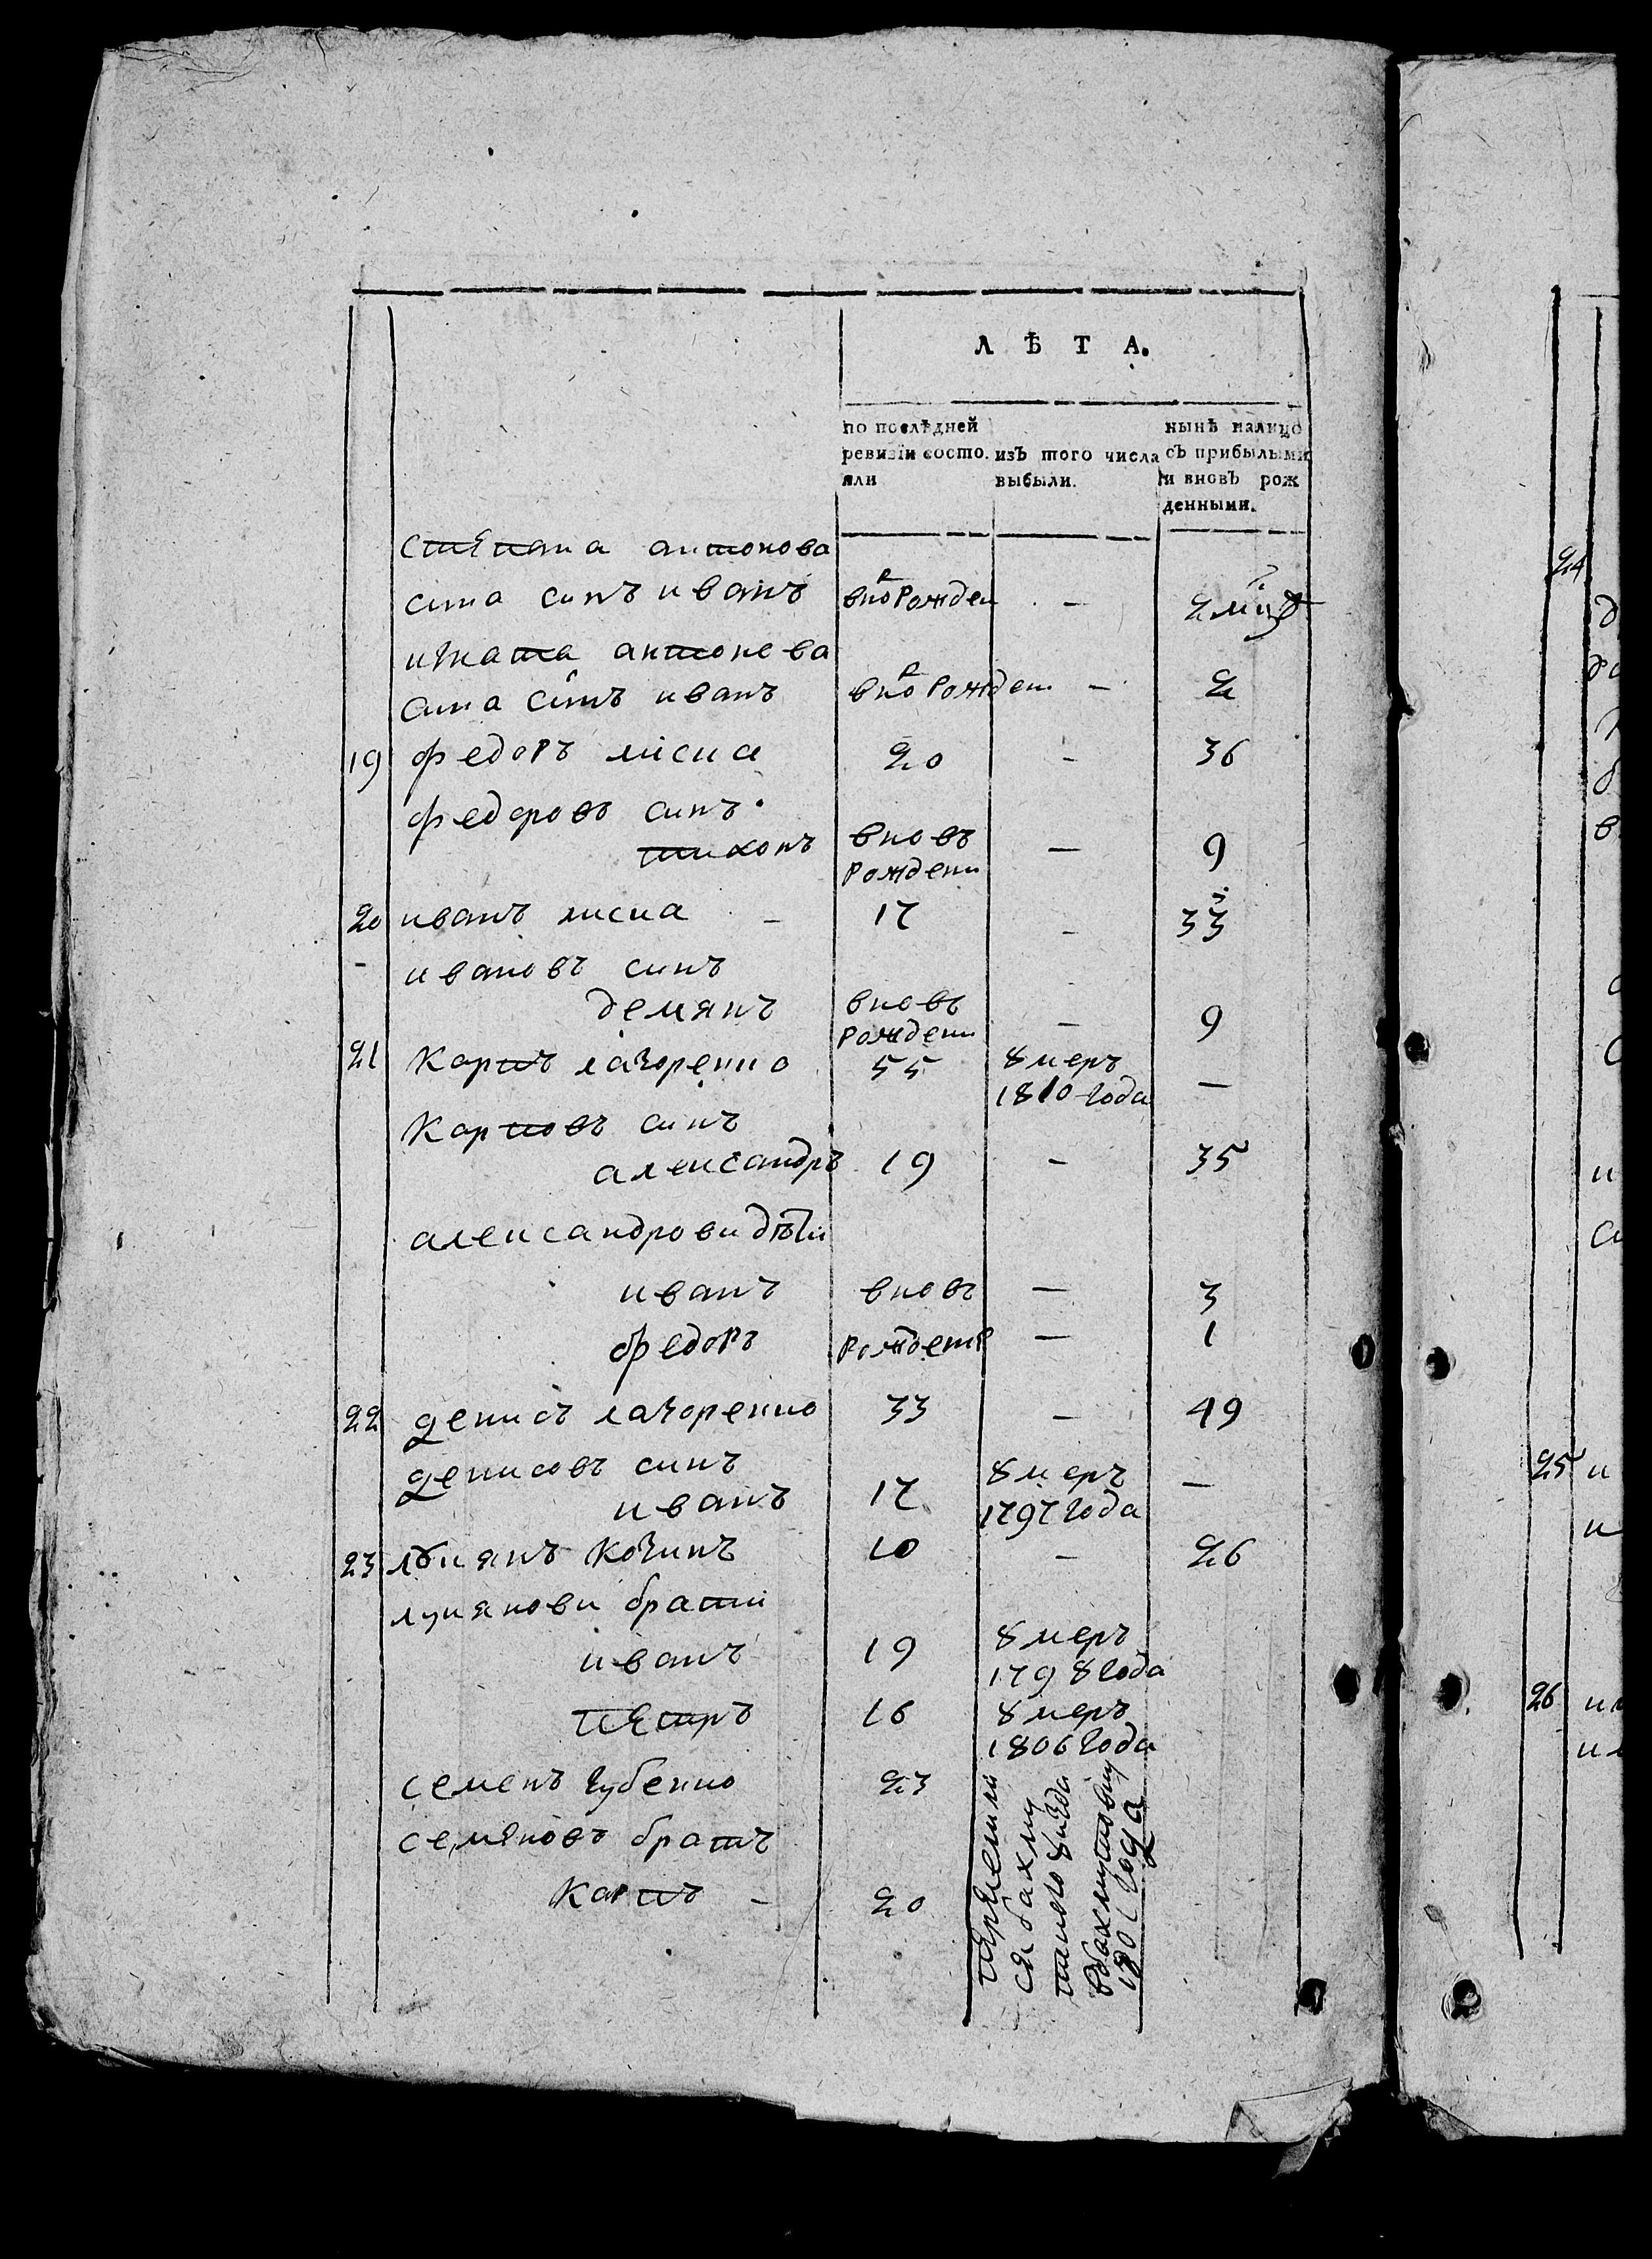 ЛѢТА.
по послѣдней ревизіи состояли
изъ того числа выбыли.
нынѣ налицо съ прибылыми и вновь рожденными.
степана антонова
сина синъ иванъ вно рожден - 2
игната антонова
сина синъ иванъ вно рожден - 2
19 федоръ лисиа 20 - 36
федоровъ синъ
тихонъ вновъ рождени - 9
20 иванъ лисиа - 17 - 33
- ивановъ синъ
демянъ вновъ рождени - 9
21 Карпъ лазоренко 55 ꙋмеръ 1810 года -
Карповъ синъ
александръ 19 - 35
александрови дѣти
иванъ вновъ - 3
федоръ рожденъ - 1
22 денисъ лазоренко 33 - 49
денисовъ синъ
иванъ 17 ꙋмеръ 1797 года -
23 лꙋкянъ Козинъ 10 - 26
лукянови братіи
иванъ 19 ꙋмеръ 1798 года
петръ 16 ꙋмеръ 1806 года
семенъ губенко 23
семеновъ братъ
Карпъ - 20
1801 года